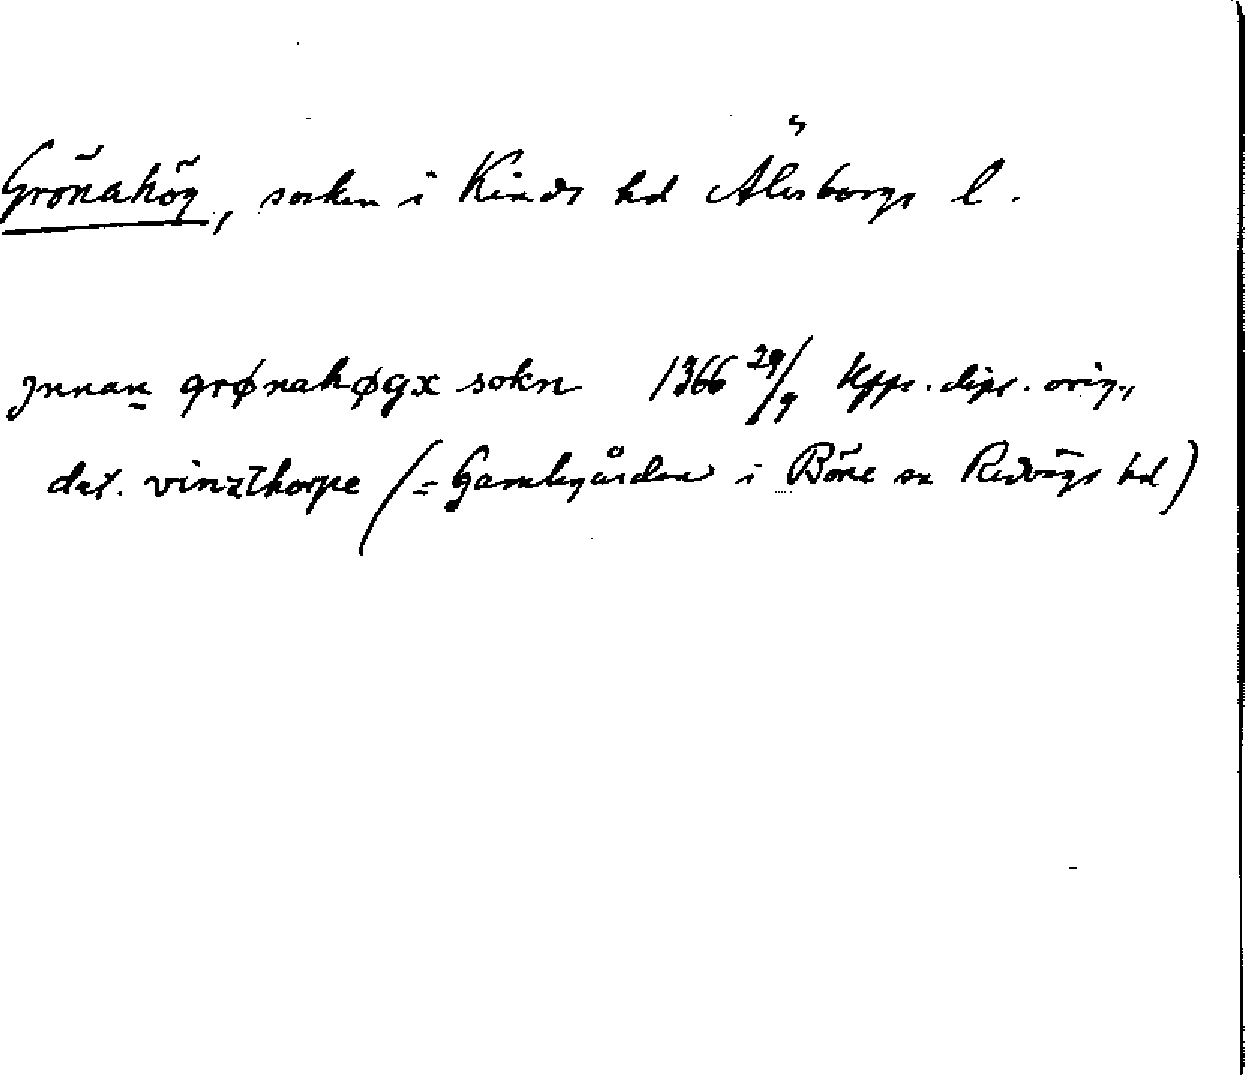 Grönahög, socken i Kinds hd Älvsborgs l.
jnnan grønahøgx sokn 1366 29/9 Kpps. dipl. orig.,
dat. vinzthorpe (= Gamlegården i Böne sn Redvägs hd)